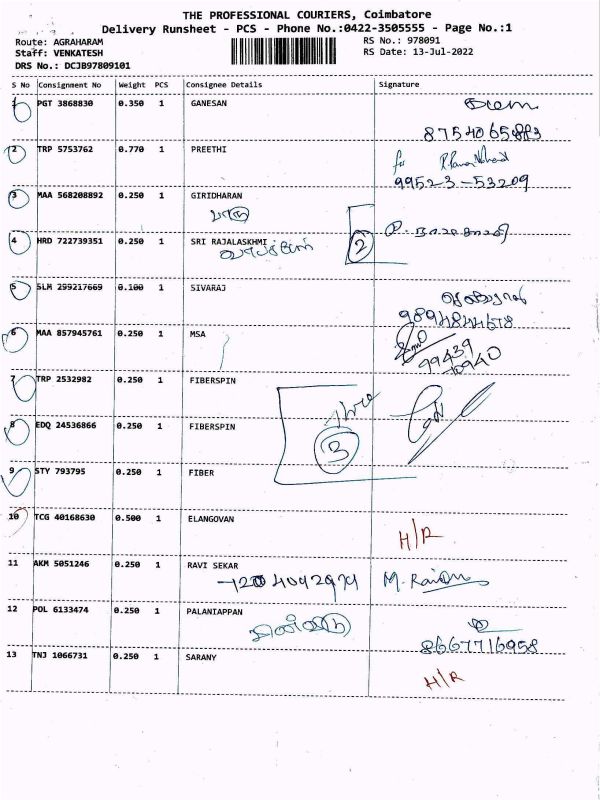 THE PROFESSIONAL COURIERS, Coimbatore
Delivery Runsheet - PCS - Phone No.:0422-3505555 - Page No.:1
Route: AGRAHARAM RS No.: 978091
Staff: VENKATESH RS Date: 13-Jul-2022
DRS No.: DCJB97809101
S No Consignment No Weight PCS Consignee Details Signature
1 PGT 3868830 0.350 1 GANESAN
2 TRP 5753762 0.770 1 PREETHI for
99523-53209
3 MAA 568208892 0.250 1 GIRIDHARAN
4 HRD 722739351 0.250 1 SRI RAJALASKHMI 2
5 SLM 299217669 0.100 1 SIVARAJ
9894844678
6 MAA 857945761 0.250 1 MSA
99439
7 TRP 2532982 0.250 1 FIBERSPIN
Three
8 EDQ 24536866 0.250 1 FIBERSPIN 3
9 STY 793795 0.250 1 FIBER
10 TCG 40168630 0.500 1 ELANGOVAN H/R
11 AKM 5051246 0.250 1 RAVI SEKAR
12 POL 6133474 0.250 1 PALANIAPPAN
8667716958
13 TNJ 1066731 0.250 1 SARANY H/R